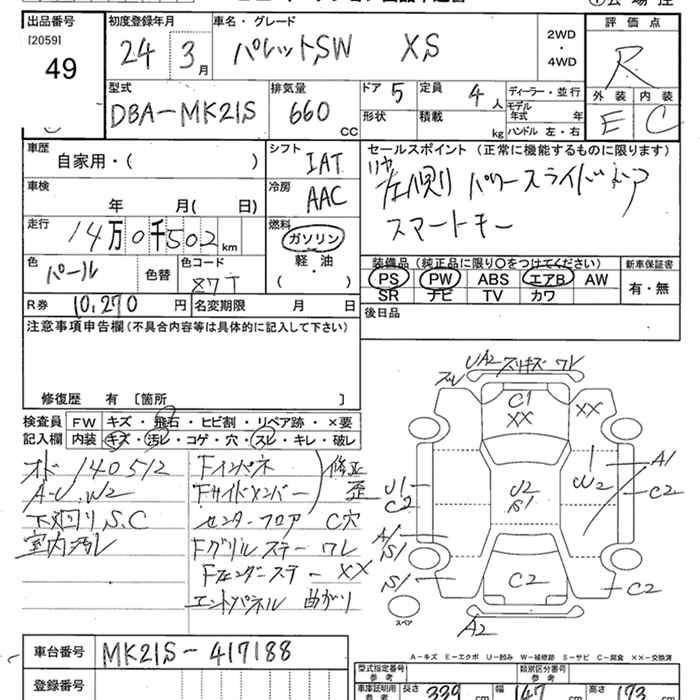 出品番号
[2059]
49
初度登録年月
24 3月
車名・グレード
パレットSW XS
2WD
・
4WD
評価点
R
外装 内装
E C
型式
DBA-MK21S
排気量
660 CC
ドア 5
定員 4人
形状
積載 kg
ディーラー・並行
モデル年式 年
ハンドル 左・右
車歴
自家用・( )
シフト
IAT
車検
年 月( 日)
冷房
AAC
走行
14万0千502km
燃料
ガソリン
軽・油
( )
色
パール
色替
色コード
R券 10,270円
名変期限 月 日
セールスポイント (正常に機能するものに限ります)
リヤ左側 パワースライドドア
スマートキー
装備品(純正品に限り○をつけてください)
PS PW ABS エアB AW
SR ナビ TV カワ
新車保証書
有・無
後日品
注意事項申告欄(不具合内容等は具体的に記入して下さい)
修復歴 有 [箇所 ]
検査員記入欄
FW キズ・飛石・ヒビ割・リペア跡・×要
内装 キズ・汚レ・コゲ・穴・スレ・キレ・破レ
オド 140512
A-U、W2
下廻り S.C
室内汚レ
Fインパネ
Fサイドメンバー
修正
歪
センターフロア C穴
Fグリルステー ワレ
Fフェンダーステー XX
エンドパネル 曲がり
UA2 スリキズ ワレ
C1
XX
XX
U1
C2
U2
S1
W2
A1
C2
A1
S1
S1
C2
C2
A2
スペア
A-キズ E-エクボ U-凹み W-補修跡 S-サビ C-腐食 XX-交換済
車台番号 MK21S-417188
登録番号
型式指定番号 参考
類別区分番号 参考
車庫証明用 参考
長さ 339 cm
幅 147 cm
高さ 173 cm